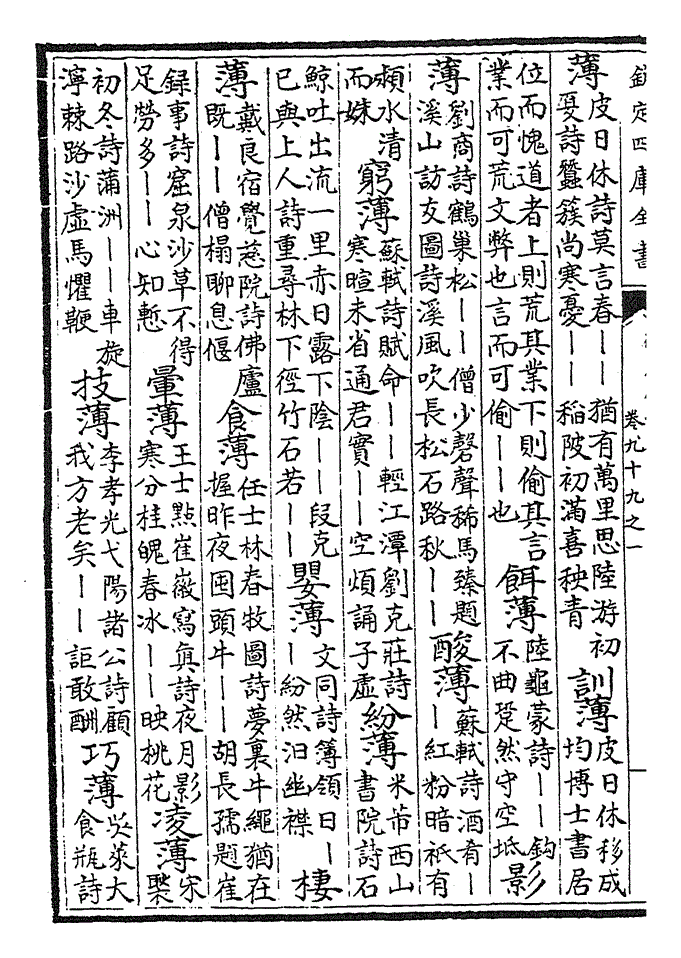 欽定四庫全書
卷九十九之一
薄皮日休詩莫言春——猶有萬里思陸游初夏詩蠶簇尚寒憂——稻陂初滿喜秧青訓薄皮日休移成均博士書居
位而愧道者上則荒其業下則偷其言業而可荒文弊也言而可偷——也餌薄陸龜蒙詩——鈎不曲跫然守空坻影
薄劉商詩鶴巢松——僧少磬聲稀馬臻題溪山訪友圖詩溪風吹長松石路秋——酸薄蘇軾詩酒肴——紅粉暗祇有
潁水清而姝窮薄蘇軾詩賦命——輕江潭劉克莊詩寒暄未省通君實——空煩誦子虛紛薄米芾西山書院詩石
鯨吐出流一里赤日露下陰——段克已與上人詩重尋林下徑竹石若——嬰薄文同詩簿領日——紛然汨幽襟棲
薄戴良宿覺慈院詩佛廬既——僧榻聊息偃食薄任士林春牧圖詩夢裏牛繩猶在握昨夜囤頭牛——胡長孺題崔
録事詩窟泉沙草不得足勞多——心知慙暈薄王士點崔徽寫真詩夜月影寒分桂魄春冰——映桃花凌薄宋褧
初冬詩蒲洲——車旋濘棘路沙虛馬懼鞭技薄李孝光弋陽諸公詩顧我方老矣——詎敢酬巧薄吳萊大食瓶詩